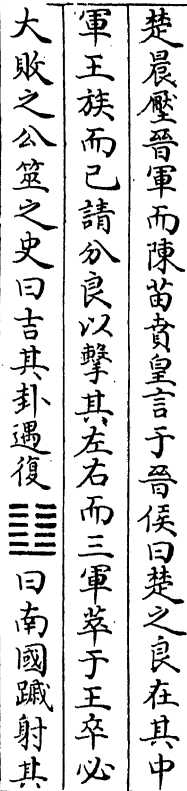 楚晨壓晉軍而陳苗賁皇言于晉侯曰楚之良在其中
軍王族而已請分良以擊其左右而三軍萃于王卒必
大敗之公筮之史曰吉其卦遇復䷗曰南國䠞射其